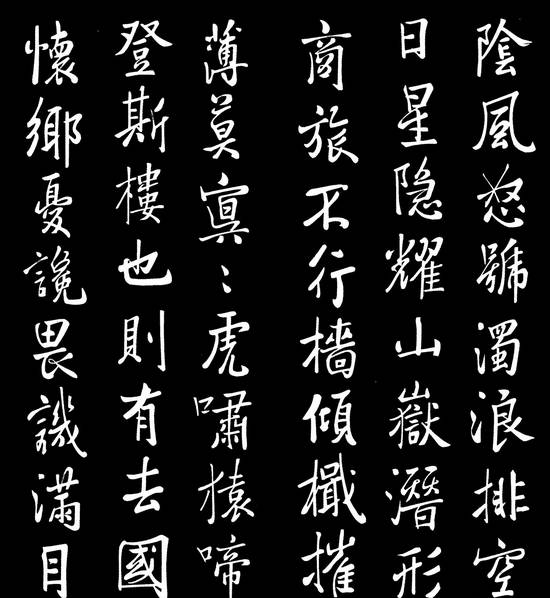 陰風怒號濁浪排空
日星隐耀山嶽潛形
商旅不行檣傾檝摧
薄莫寘〻虎嘯猿啼
登斯樓也則有去國
懷鄉憂讒畏譏滿目